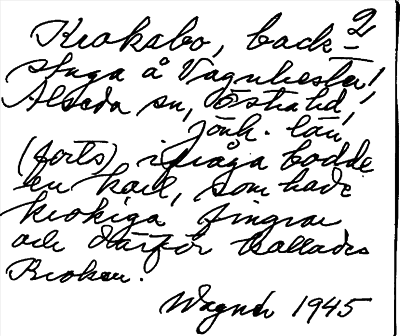 2
Krokabo, back-
stuga å Vagnhester!
Alseda sn, Östra hd,
Jönk. län
(forts) i fråga bodde
en karl, som hade
krokiga fingrar
och därför kallades
Kroken.
Wagnér 1945